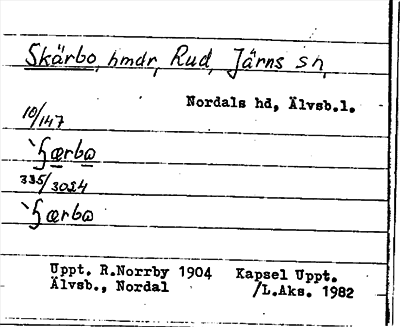 Skärbo, hmdr, Rud, Järns sn,
Nordals hd, Älvsb.l.
10/147
`ʃærbɷ
335/3024
`ʃærbɷ
Uppt. R.Norrby 1904 Kapsel Uppt.
Älvsb., Nordal /L.Aks. 1982